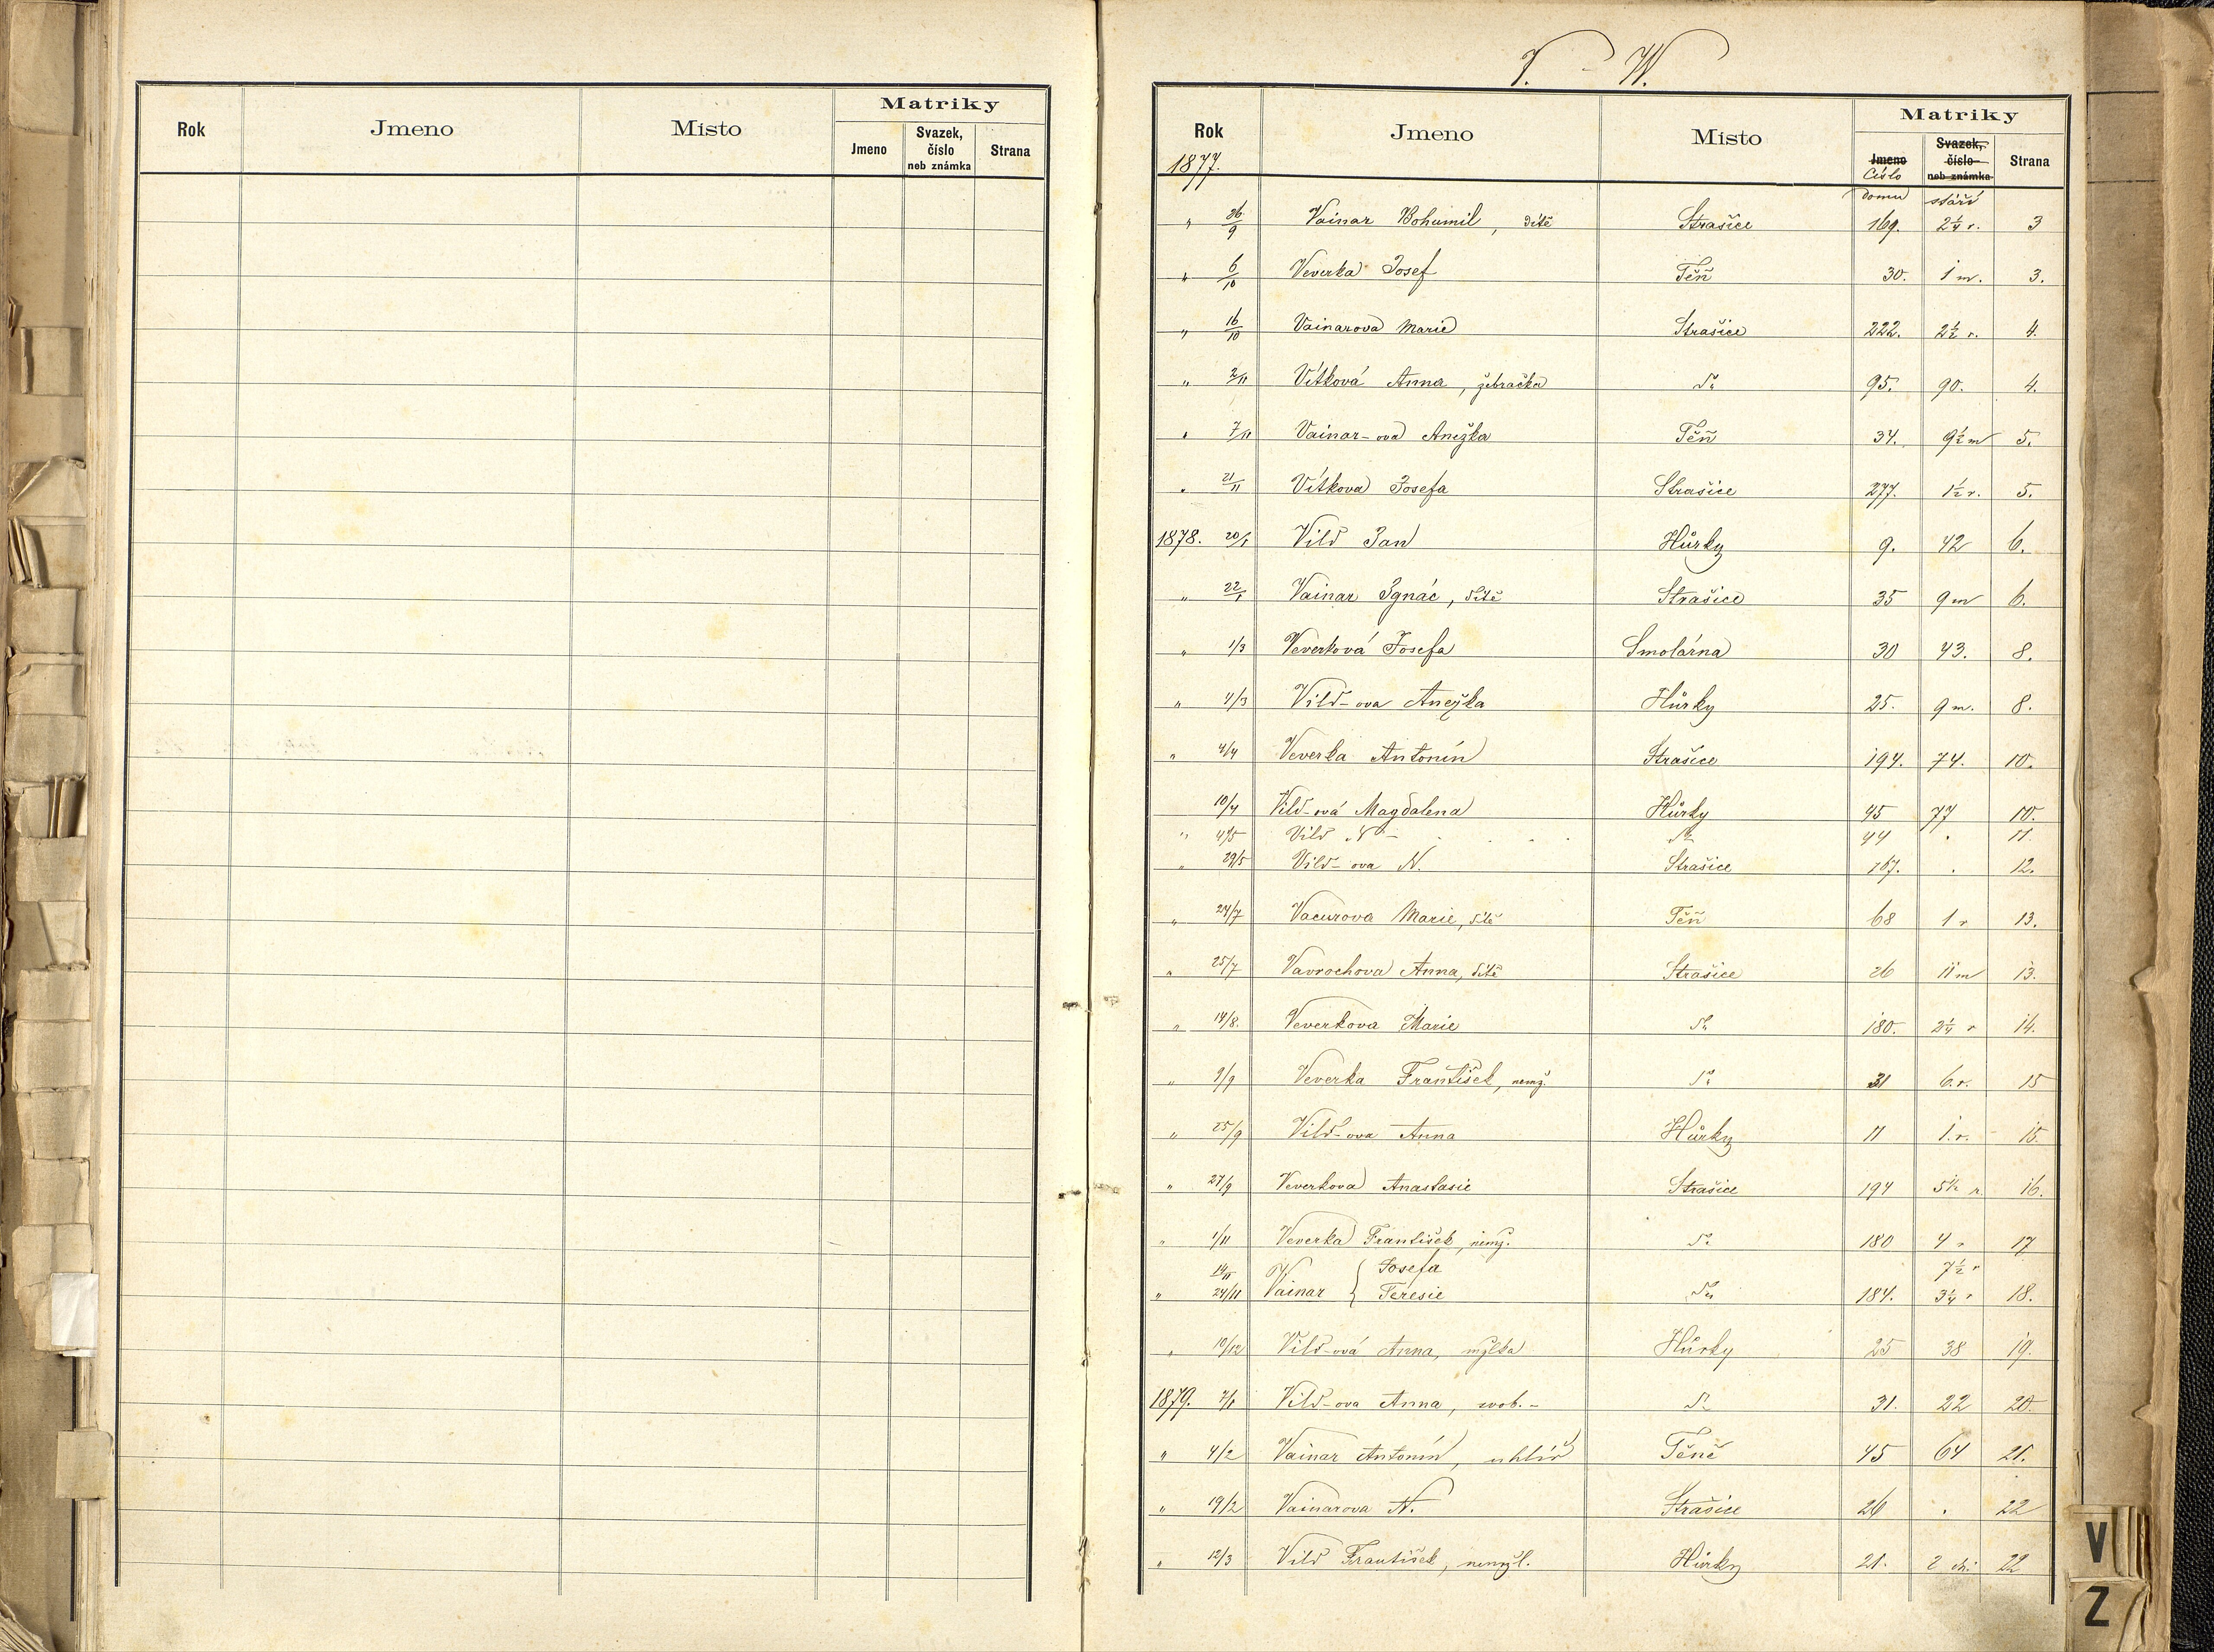 Matriky
Rok Jmeno Místo Jmeno Svazek, číslo neb známka Strana
V. - W.
Matriky
Rok Jmeno Místo Jmeno Svazek, číslo neb známka Strana
1877. Číslo domu stáří
" 26/9 Vainar Bohumil, dítě Strašice 169. 2 1/4 r. 3
" 6/10 Veverka Josef Těň 30. 1 m. 3.
" 16/10 Vainarova Marie Strašice 222. 2 1/2 r. 4.
" 2/11 Vítková Anna, žebračka dto 95. 90. 4.
" 7/11 Vainar-ova Anežka Těň 34. 9 1/2 m 5.
" 21/11 Vítkova Josefa Strašice 277. 1 1/2 r. 5.
1878. 20/1 Vild Jan Hůrky 9. 42 6.
" 22/1 Vainar Ignác, dítě Strašice 35 9 m 6.
" 1/3 Veverková Josefa Smolárna 30 43. 8.
" 4/3 Vild-ova Anežka Hůrky 25. 9 m. 8.
" 4/4 Veverka Antonín Strašice 194. 74. 10.
10/4 Vild-ová Magdalena Hůrky 45 77 10.
" 4/5 Vild N - dto 44 . 11
" 29/5 Vild-ova N. Strašice 167. . 12.
" 24/7 Vacurova Marie, dítě Těň 68 1 r 13.
" 25/7 Vavrochova Anna, dítě Strašice 26 11 m 13.
" 14/8. Veverkova Marie dto 180. 2 1/4 r 14.
" 9/9 Veverka František, nemž. dto 31 6. r. 15
" 25/9 Vild-ova Anna Hůrky 11 1. r. 15.
" 27/9 Veverkova Anastasie Strašice 194 5 1/2 r. 16.
" 1/11 Veverka František, nemž. dto 180 4 r 17
14/11 Josefa 7 1/2 r
" 24/11 Vainar { Teresie dto 184. 3 1/4 r 18.
" 10/12 Vild-ová Anna, Hůrky 25 38 19.
1879. 7/1 Vild-ova Anna, svob.- dto 31. 22 20.
" 4/2 Vainar Antonín, uhlíř Těně 45 64 21.
" 19/2 Vainarova N. Strašice 26 . 22
" 12/3 Vild František, nemžl. Hůrky 21. 2 dni 22
V
Z